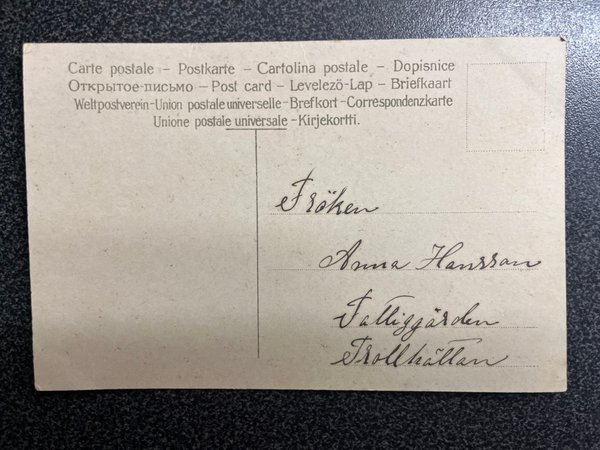 Carte postale – Postkarte – Cartolina postale – Dopisnice
Открытое-письмо – Post card – Levelezö-Lap – Briefkaart
Weltpostverein-Union postale universelle-Brefkort-Correspondenzkarte
Unione postale universale – Kirjekortti.
Fröken
Anna Hansson
Fattiggården
Trollhättan